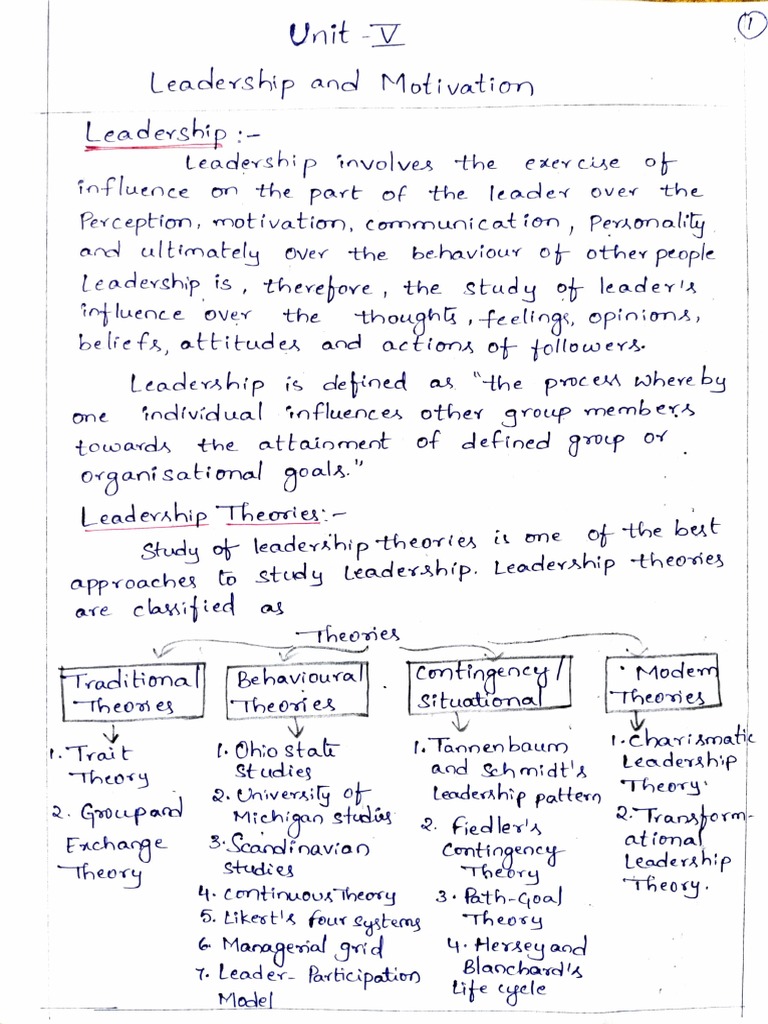 1
Unit - V
Leadership and Motivation
Leadership :-
Leadership involves the exercise of
influence on the part of the leader over the
Perception, motivation, communication, Personality
and ultimately over the behaviour of other people
Leadership is, therefore, the study of leader's
influence over the thoughts, feelings, opinions,
beliefs, attitudes and actions of followers.
Leadership is defined as "the process whereby
one individual influences other group members
towards the attainment of defined group or
organisational goals."
Leadership Theories:-
Study of leadership theories is one of the best
approaches to study Leadership. Leadership theories
are classified as
Theories
Traditional
Theories
1. Trait
Theory
2. Group and
Exchange
Theory
Behavioural
Theories
1. Ohio state
Studies
2. University of
Michigan studies
3. Scandinavian
studies
4. Continuous Theory
5. Likert's four systems
6. Managerial grid
7. Leader- Participation
Model
Contingency/
Situational
1. Tannenbaum
and Schmidt's
Leadership pattern
2. Fiedler's
Contingency
Theory
3. Path-Goal
Theory
4. Hersey and
Blanchard's
Life cycle
Modern
Theories
1. Charismatic
Leadership
Theory.
2. Transform-
ational
Leadership
Theory.